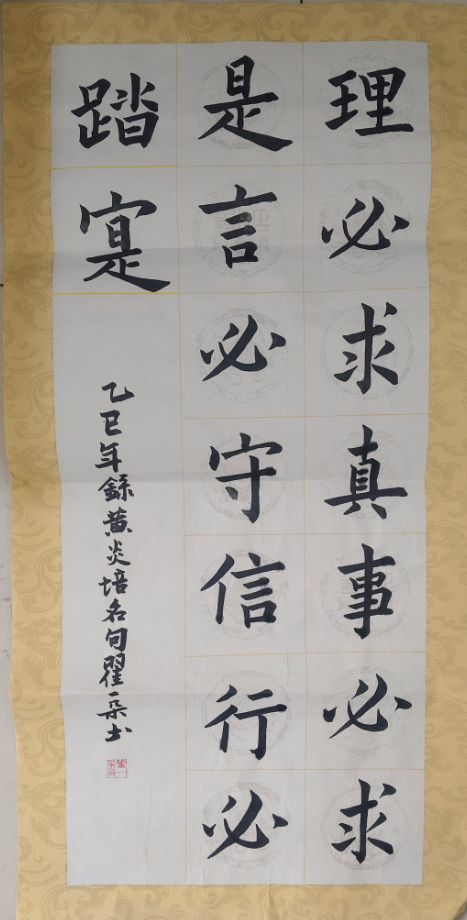 理必求真事必求
是言必守信行必
踏寔
乙巳年録黄炎培名句翟一朵书